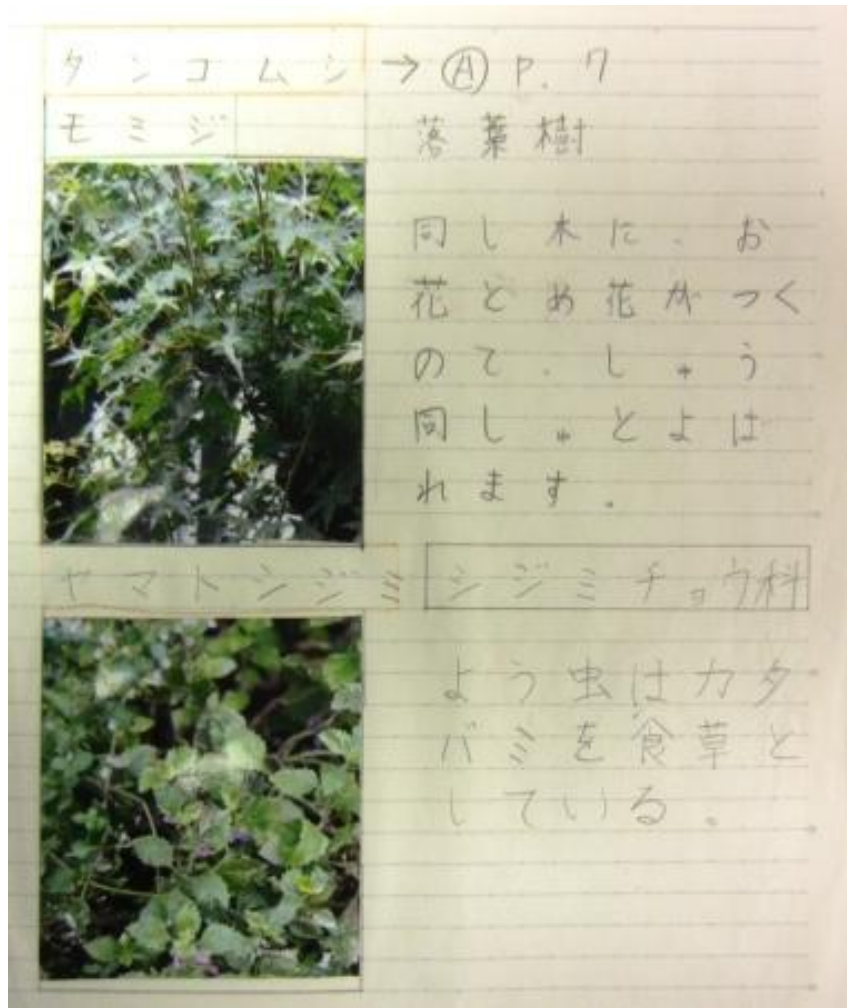 タンコムシ→Ⓐ P. 7
モミジ
落葉樹
同し木に、お
花とめ花がつく
ので、しゅう
同しゅとよば
れます。
ヤマトシジミ シジミチョウ科
よう虫はカタ
バミを食草と
している。